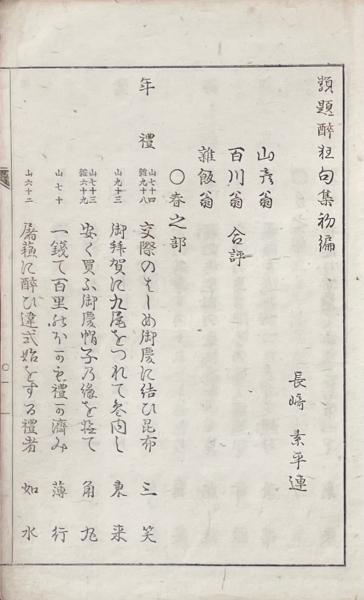 類題醉狂句集初編
長崎 素平連
山彦翁
百川翁 合評
雑飯翁
○春之部
年禮
山七十四
交際のはしめ御慶に結ひ昆布 三笑
山九十三
御拜賀に九尾をつれて参内し 東来
山七十三
館六十九
安く買ふ御慶帽子乃縁を捻て 角丸
山七十
一銭て百里のほかも禮か済み 薄行
山六十二
屠蘇に醉ひ違式始をする禮者 如水
○一